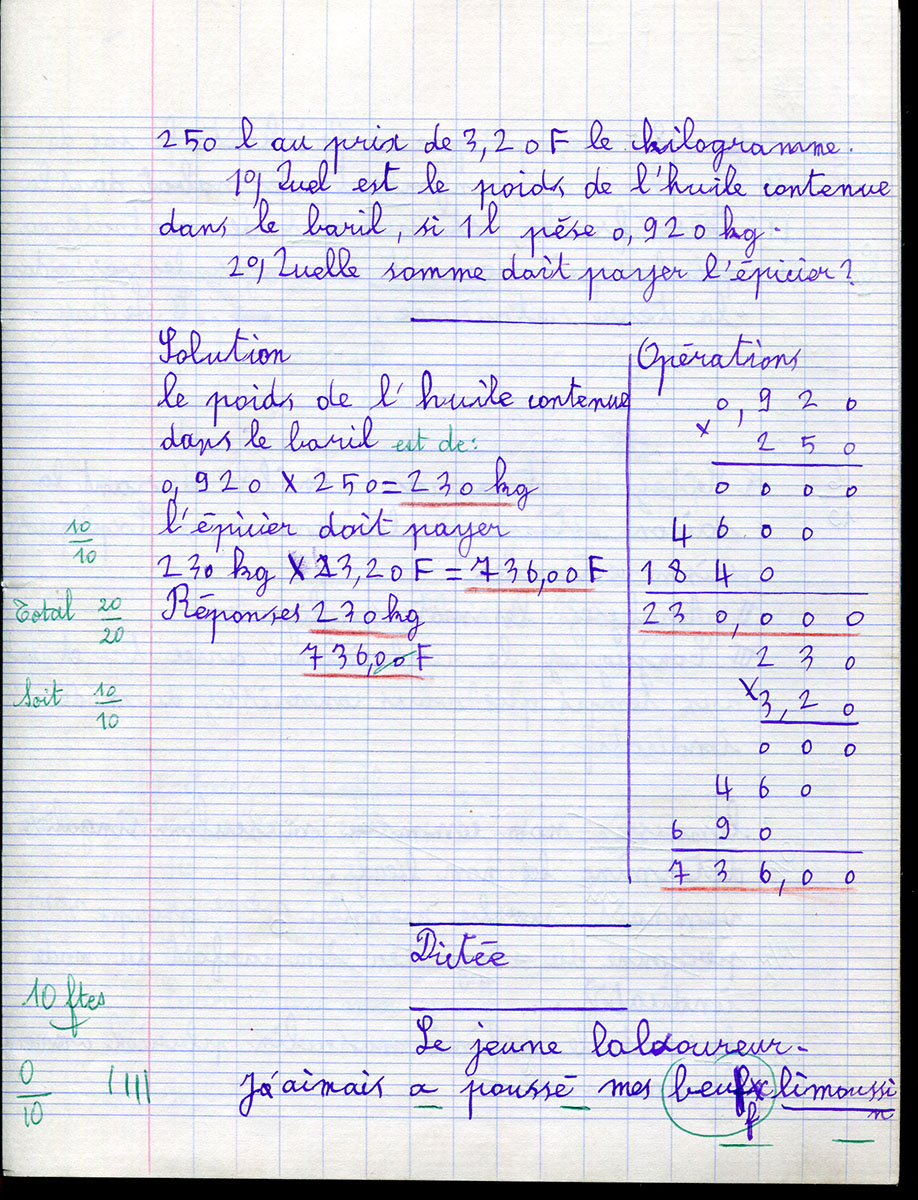 250 l au prix de 3,20F le kilogramme.
1o) Quel est le poids de l'huile contenue
dans le baril, si 1l pèse 0,920 kg.
2o) Quelle somme doit payer l'épicier?
Solution
le poids de l'huile contenue
dans le baril est de:
0,920 X 250 = 230 kg
10/10
l'épicier doit payer
230 kg X 3,20F = 736,00F
Total 20/20
Réponses 230kg
736,00F
Soit 10/10
Opérations
0,920
x 250
0000
4600
1840
230,000
230
x 3,20
000
460
690
736,00
Dictée
10 ftes
Le jeune laboureur.
0/10
J'aimais a poussé mes beufs limoussi
n